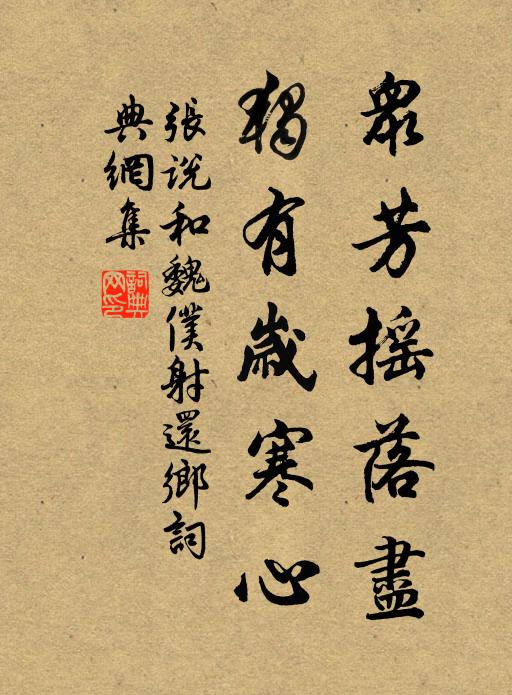 眾芳搖落盡
獨有歲寒心
張説和魏僕射還鄉詞
典網集
詞典
网印